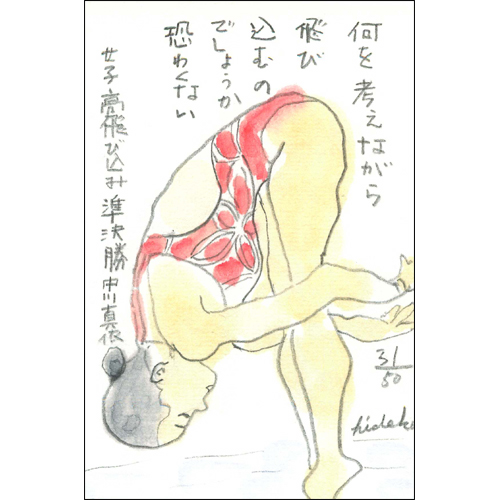 何を考えながら
飛び
込むの
でしょうか
恐わくない
女子高飛び込み準決勝中川真依
31
50
hideko